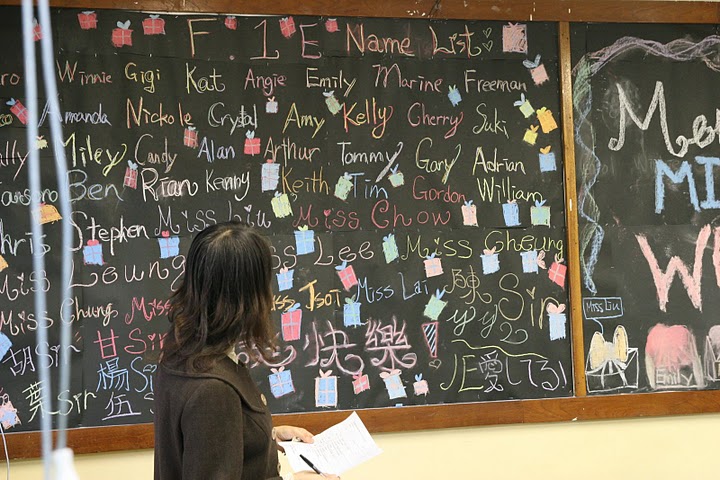 F1E Name List
Winnie Gigi Kat Angie Emily Marine Freeman
Amanda Nickole Crystal Amy Kelly Cherry Suki
Miley Candy Alan Arthur Tommy Gary Adrian
Ben Rian Kenny Keith Tim Gordon William
Stephen Miss Liu Miss Chow
Miss Leung Lee Miss Cheung
Miss Chung Miss Miss Tsoi Miss Lai 陳Sir
胡Sir 甘Sir 快樂
葉Sir 楊 伍 愛してる
Miss Liu
Emily